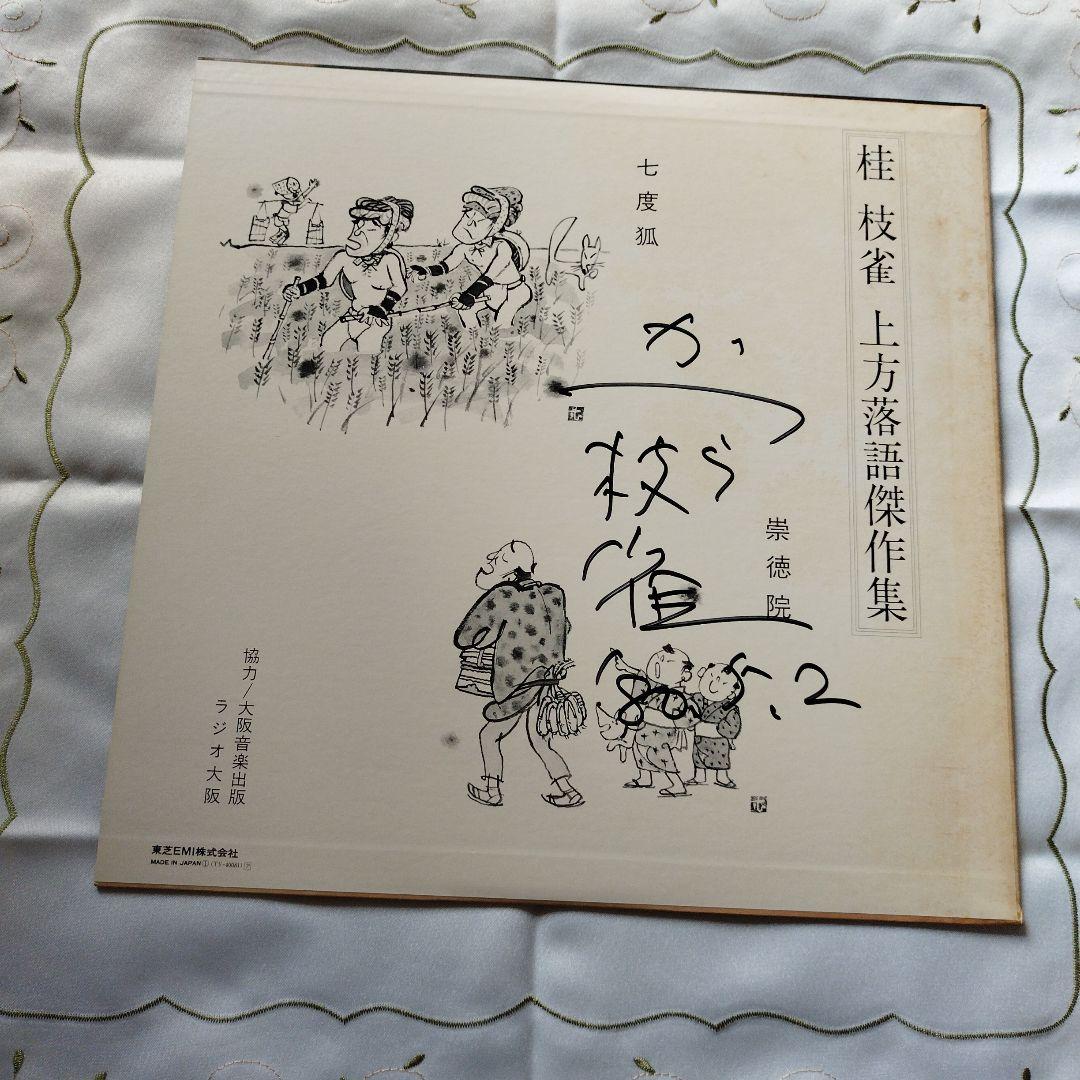 桂 枝雀 上方落語傑作集
七度狐
かつら
枝雀
'80.5.2
崇徳院
協力/大阪音楽出版
ラジオ大阪
東芝EMI株式会社
MADE IN JAPAN